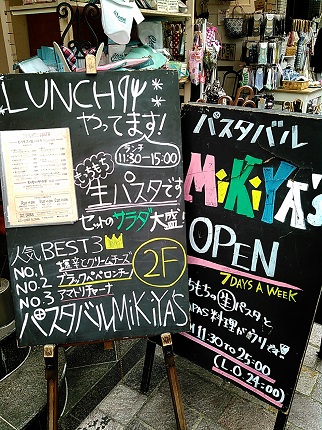 LUNCH
やってます!
ランチ
11:30-15:00
もちもち
生パスタです
セットのサラダ大盛!
人気 BEST3
NO.1 塩辛とクリームチーズ
NO.2 ブラックペペロンチーノ
NO.3 アマトリチャーナ
2F
パスタバルMiKiYA'S
パスタバル
MiKiYA'S
OPEN
7DAYS A WEEK
もちもちの生パスタと
料理がウリ
11:30 TO 25:00
(L.O 24:00)